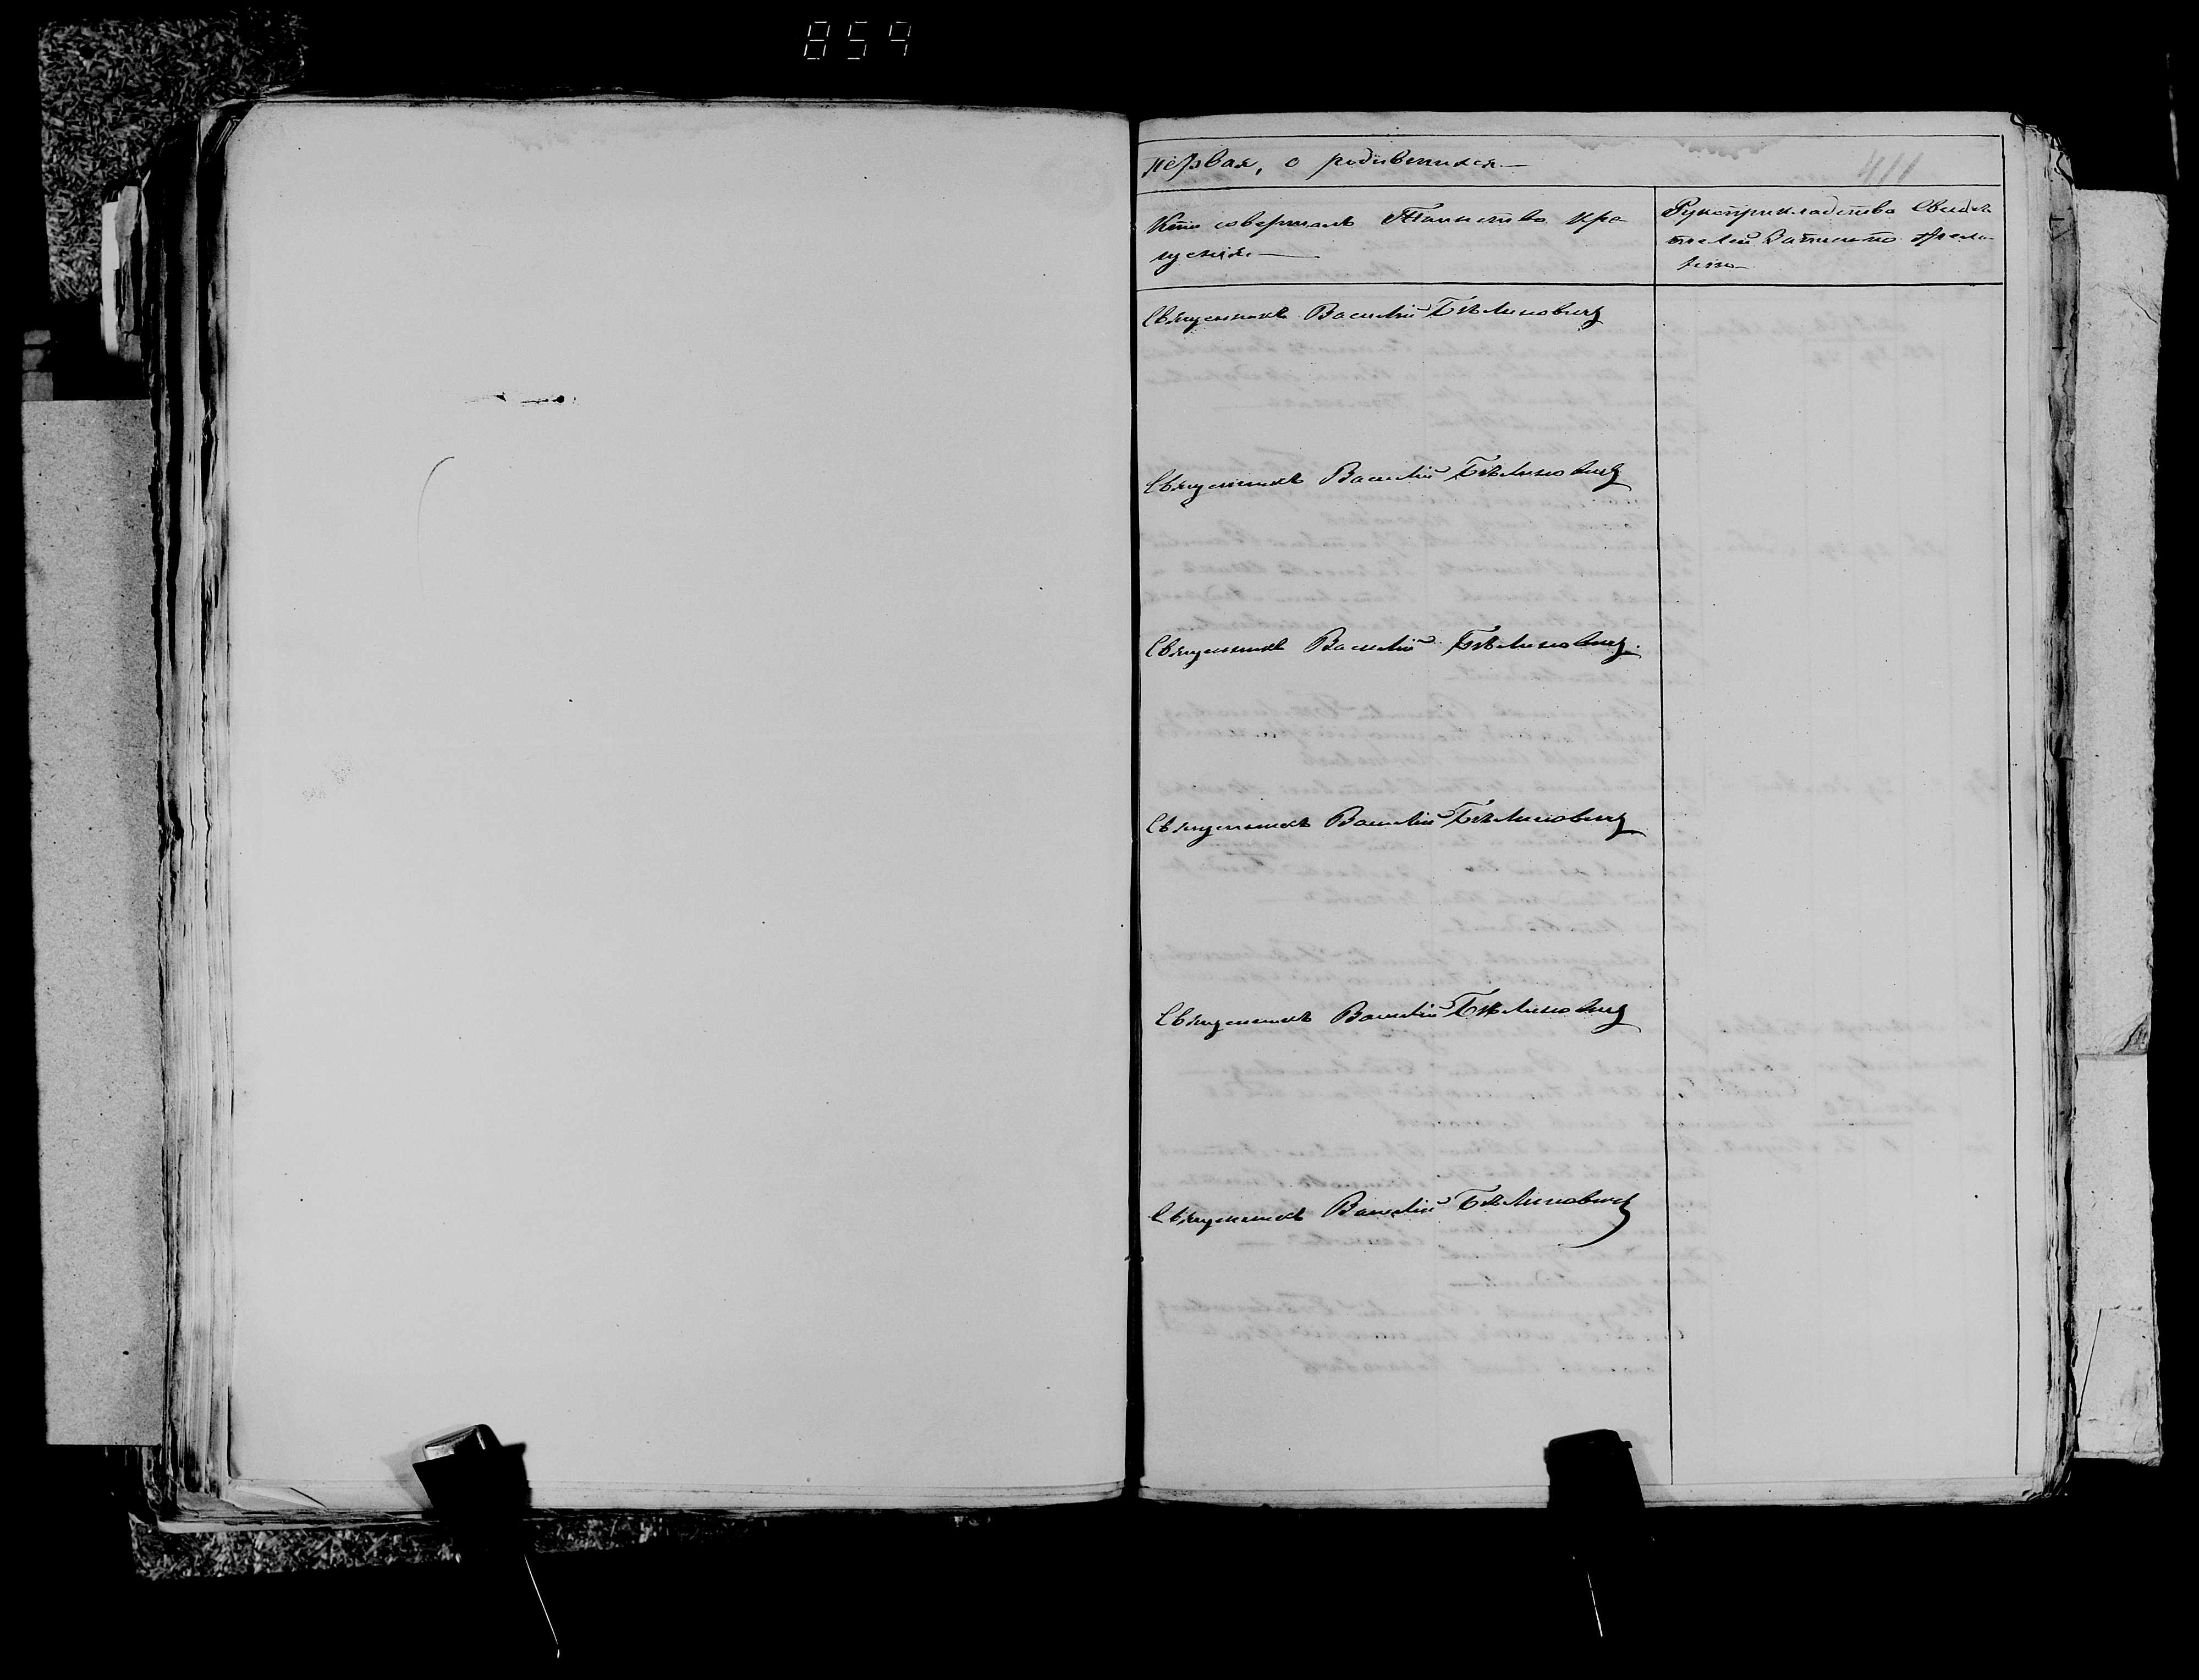 859
первая, о родившихся.—
411
Кто совершалъ Таинство кре
щенія.—
Рукоприкладство Свидѣ
телей записи по жела
нію—
Священникъ Василій Бѣлиновичъ
Священникъ Василій Бѣлиновичъ
Священникъ Василій Бѣлиновичъ.
Священникъ Василій Бѣлиновичъ
Священникъ Василій Бѣлиновичъ
Священникъ Василій Бѣлиновичъ